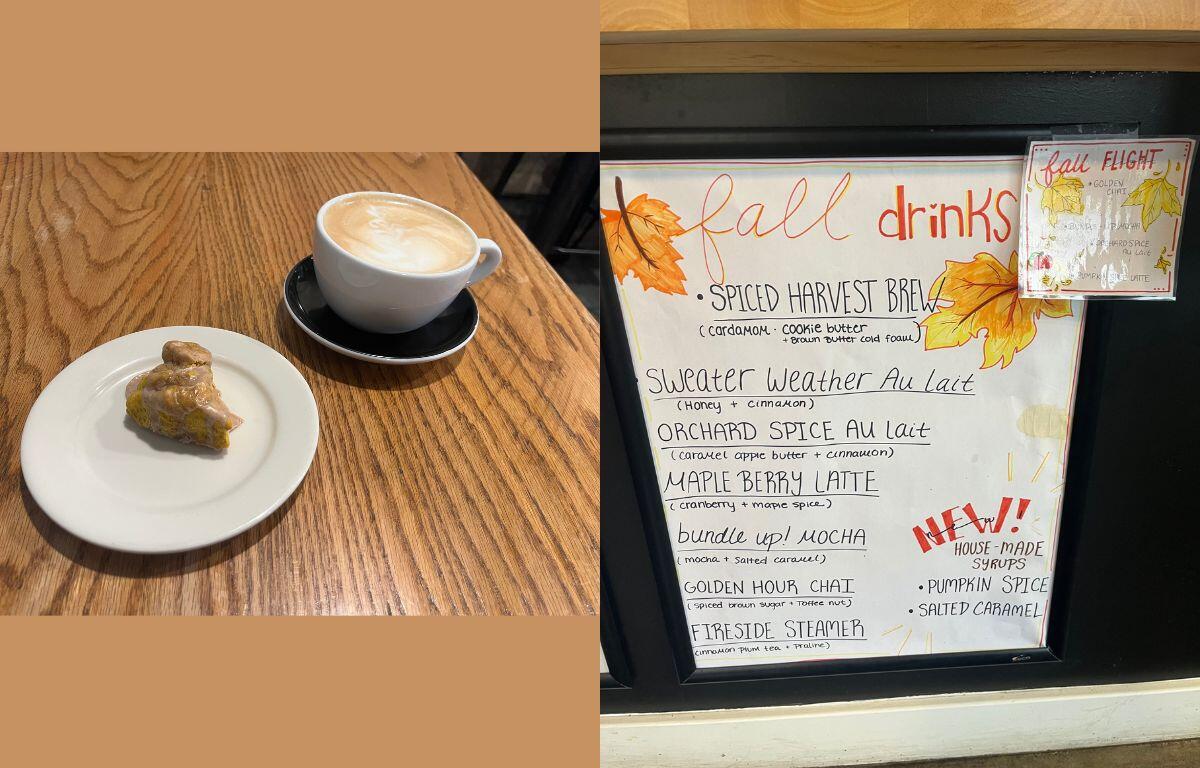 fall drinks
• SPICED HARVEST BREW
(cardamom · cookie butter
+ Brown Butter cold foam)
Sweater Weather Au Lait
(Honey + cinnamon)
ORCHARD SPICE AU Lait
(caramel apple butter + cinnamon)
MAPLE BERRY LATTE
(cranberry + maple spice)
bundle up! MOCHA
(mocha + salted caramel)
GOLDEN HOUR CHAI
(spiced brown sugar + Toffee nut)
FIRESIDE STEAMER
(cinnamon plum tea + Praline)
NEW!
new
HOUSE-MADE
SYRUPS
• PUMPKIN SPICE
• SALTED CARAMEL
fall FLIGHT
• GOLDEN
CHAI
• BUNDLE UP! MOCHA
• ORCHARD SPICE
Au Lait
• PUMPKIN SPICE LATTE